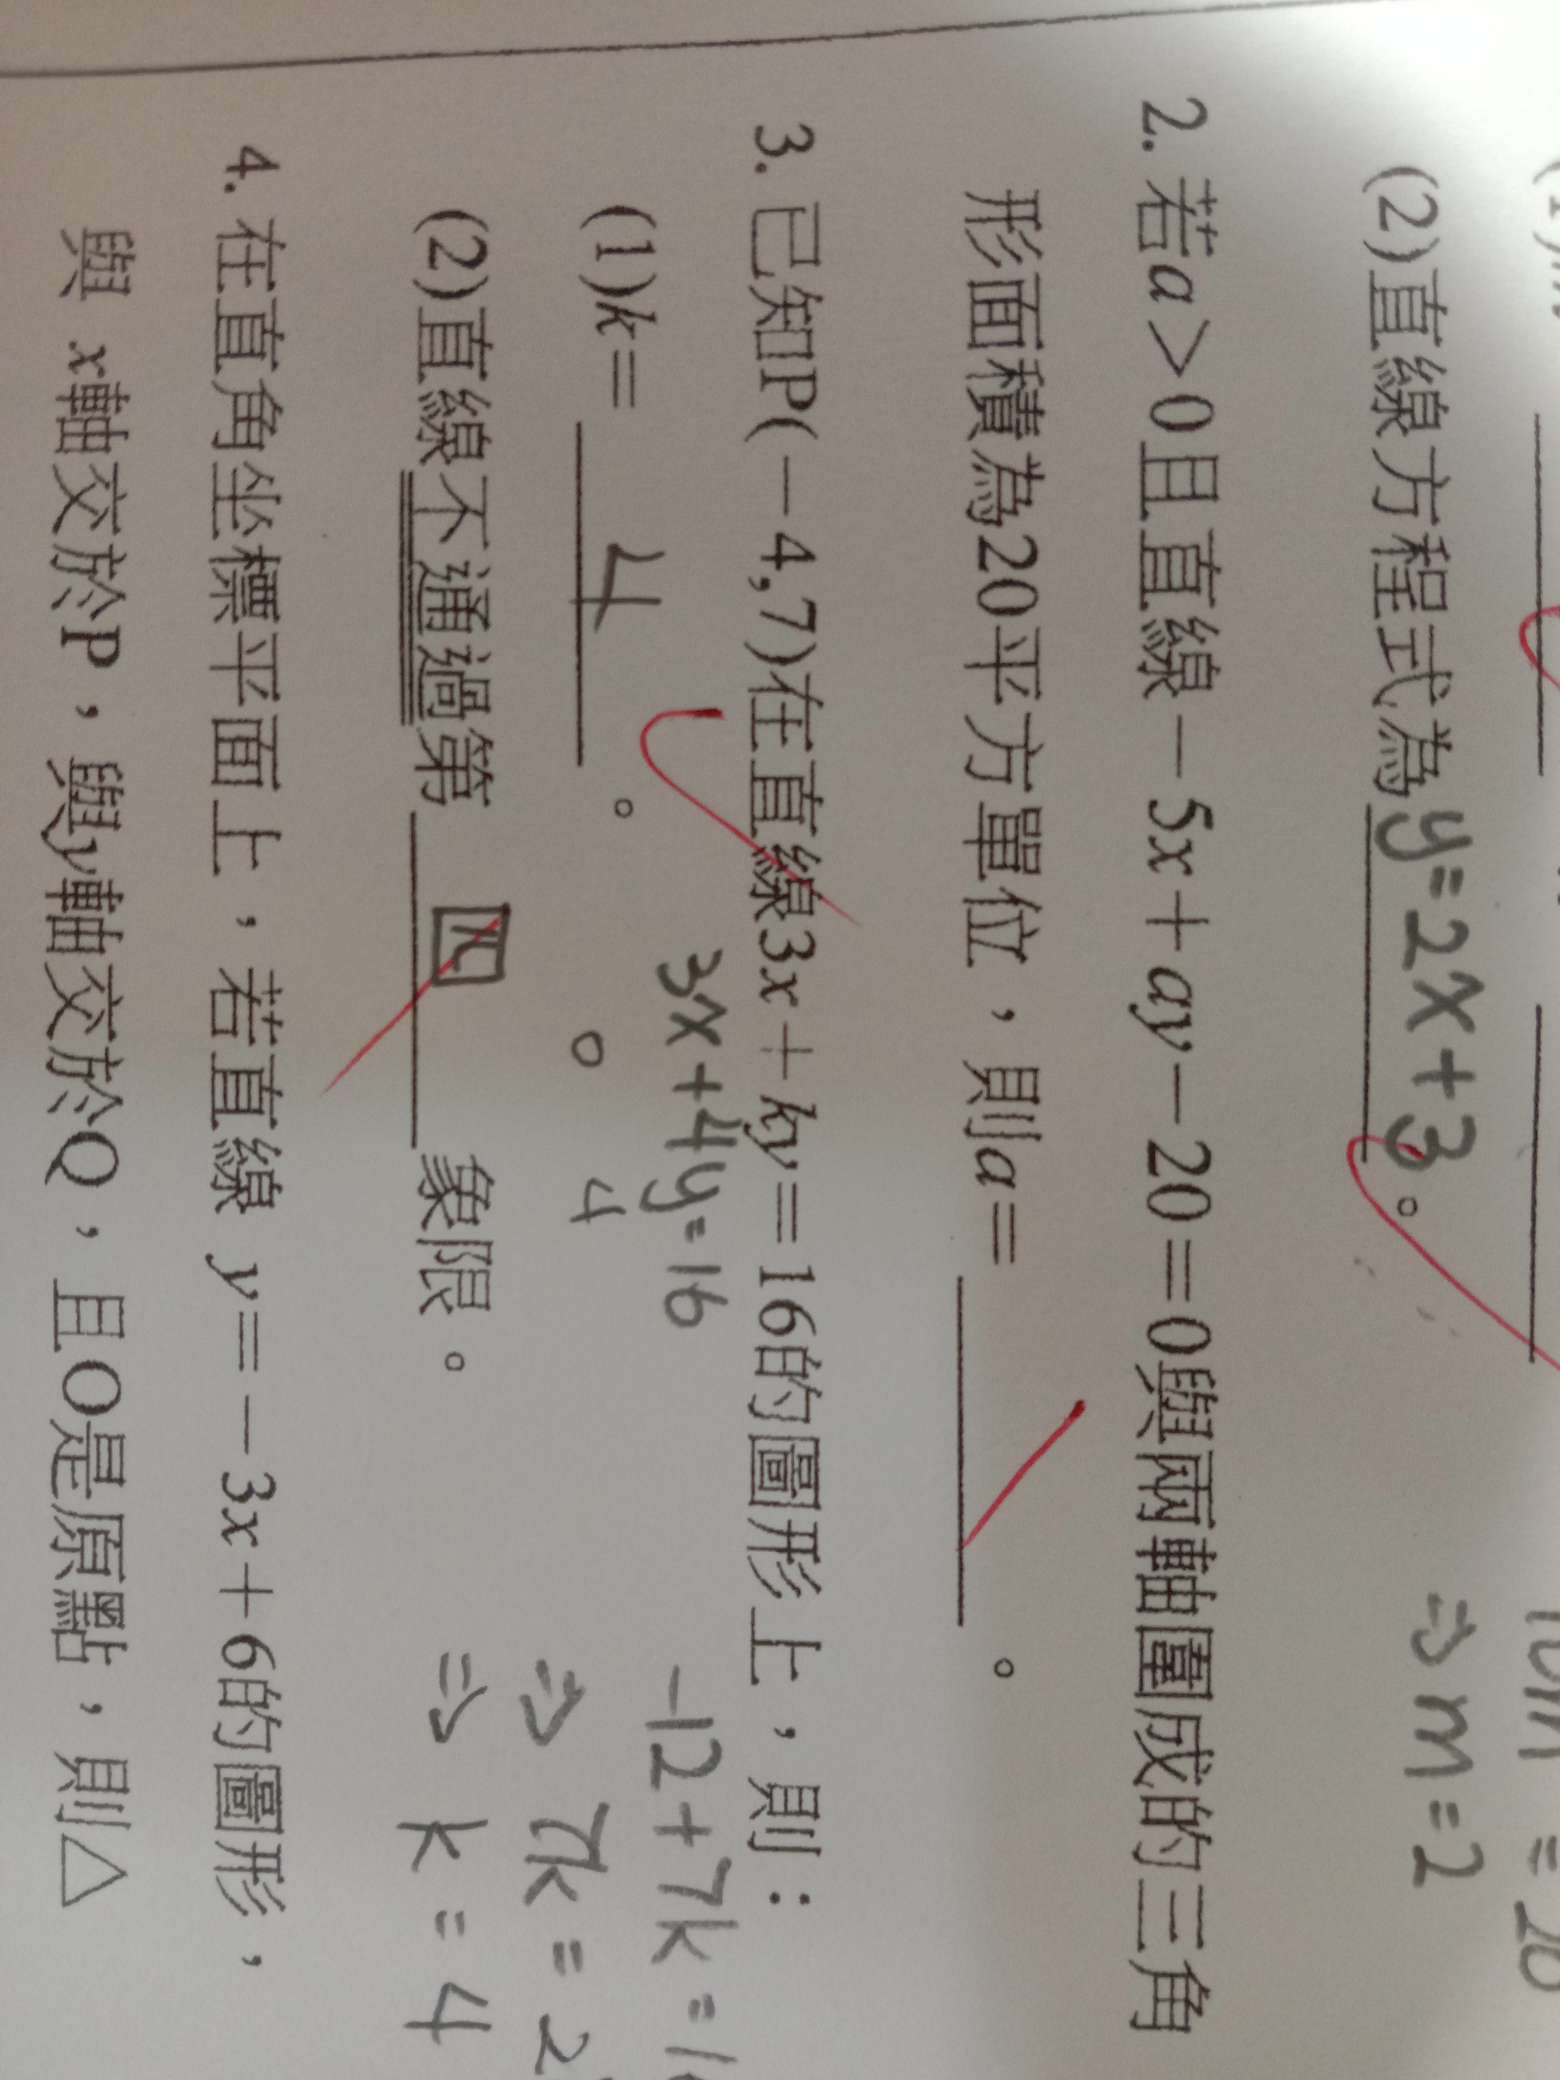 (2)直線方程式為y=2x+3。
⇒m=2
2. 若a>0且直線-5x+ay-20=0與兩軸圍成的三角
形面積為20平方單位,則a=______。
3. 已知P(-4,7)在直線3x+ky=16的圖形上,則:
3x+4y=16
-12+7k=
(1)k=4。
0 4
⇒7k=2
(2)直線不通過第四象限。
⇒k=4
4. 在直角坐標平面上,若直線 y=-3x+6的圖形,
與 x軸交於P,與y軸交於Q,且O是原點,則△